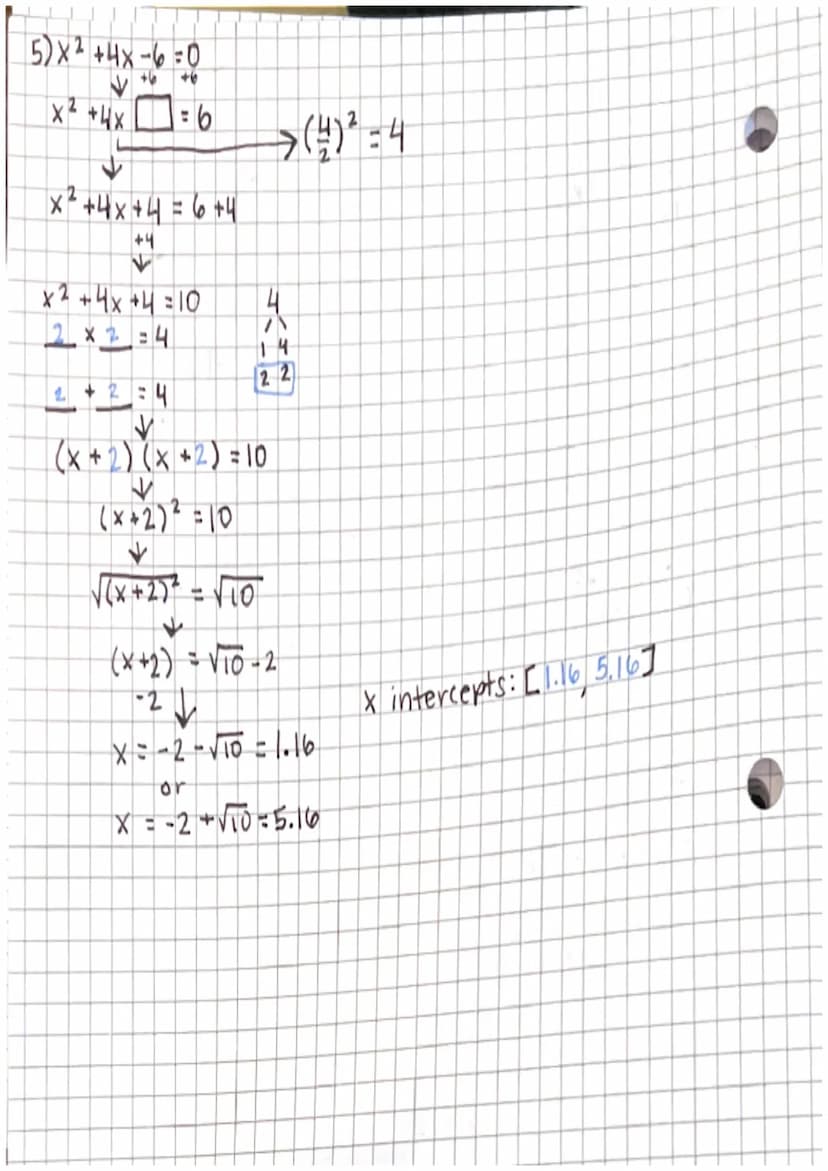 5) x² + 4x - 6 = 0
+6 +6
x² + 4x □ = 6
(4/2)² = 4
x² + 4x + 4 = 6 + 4
+4
x² + 4x + 4 = 10
2 x 2 = 4
4
1 4
2 2
2 + 2 = 4
(x + 2)(x + 2) = 10
(x + 2)² = 10
√(x + 2)² = √10
(x + 2) = √10 - 2
-2
x = -2 - √10 = 1.16
or
x = -2 + √10 = 5.16
x intercepts: [1.16, 5.16]